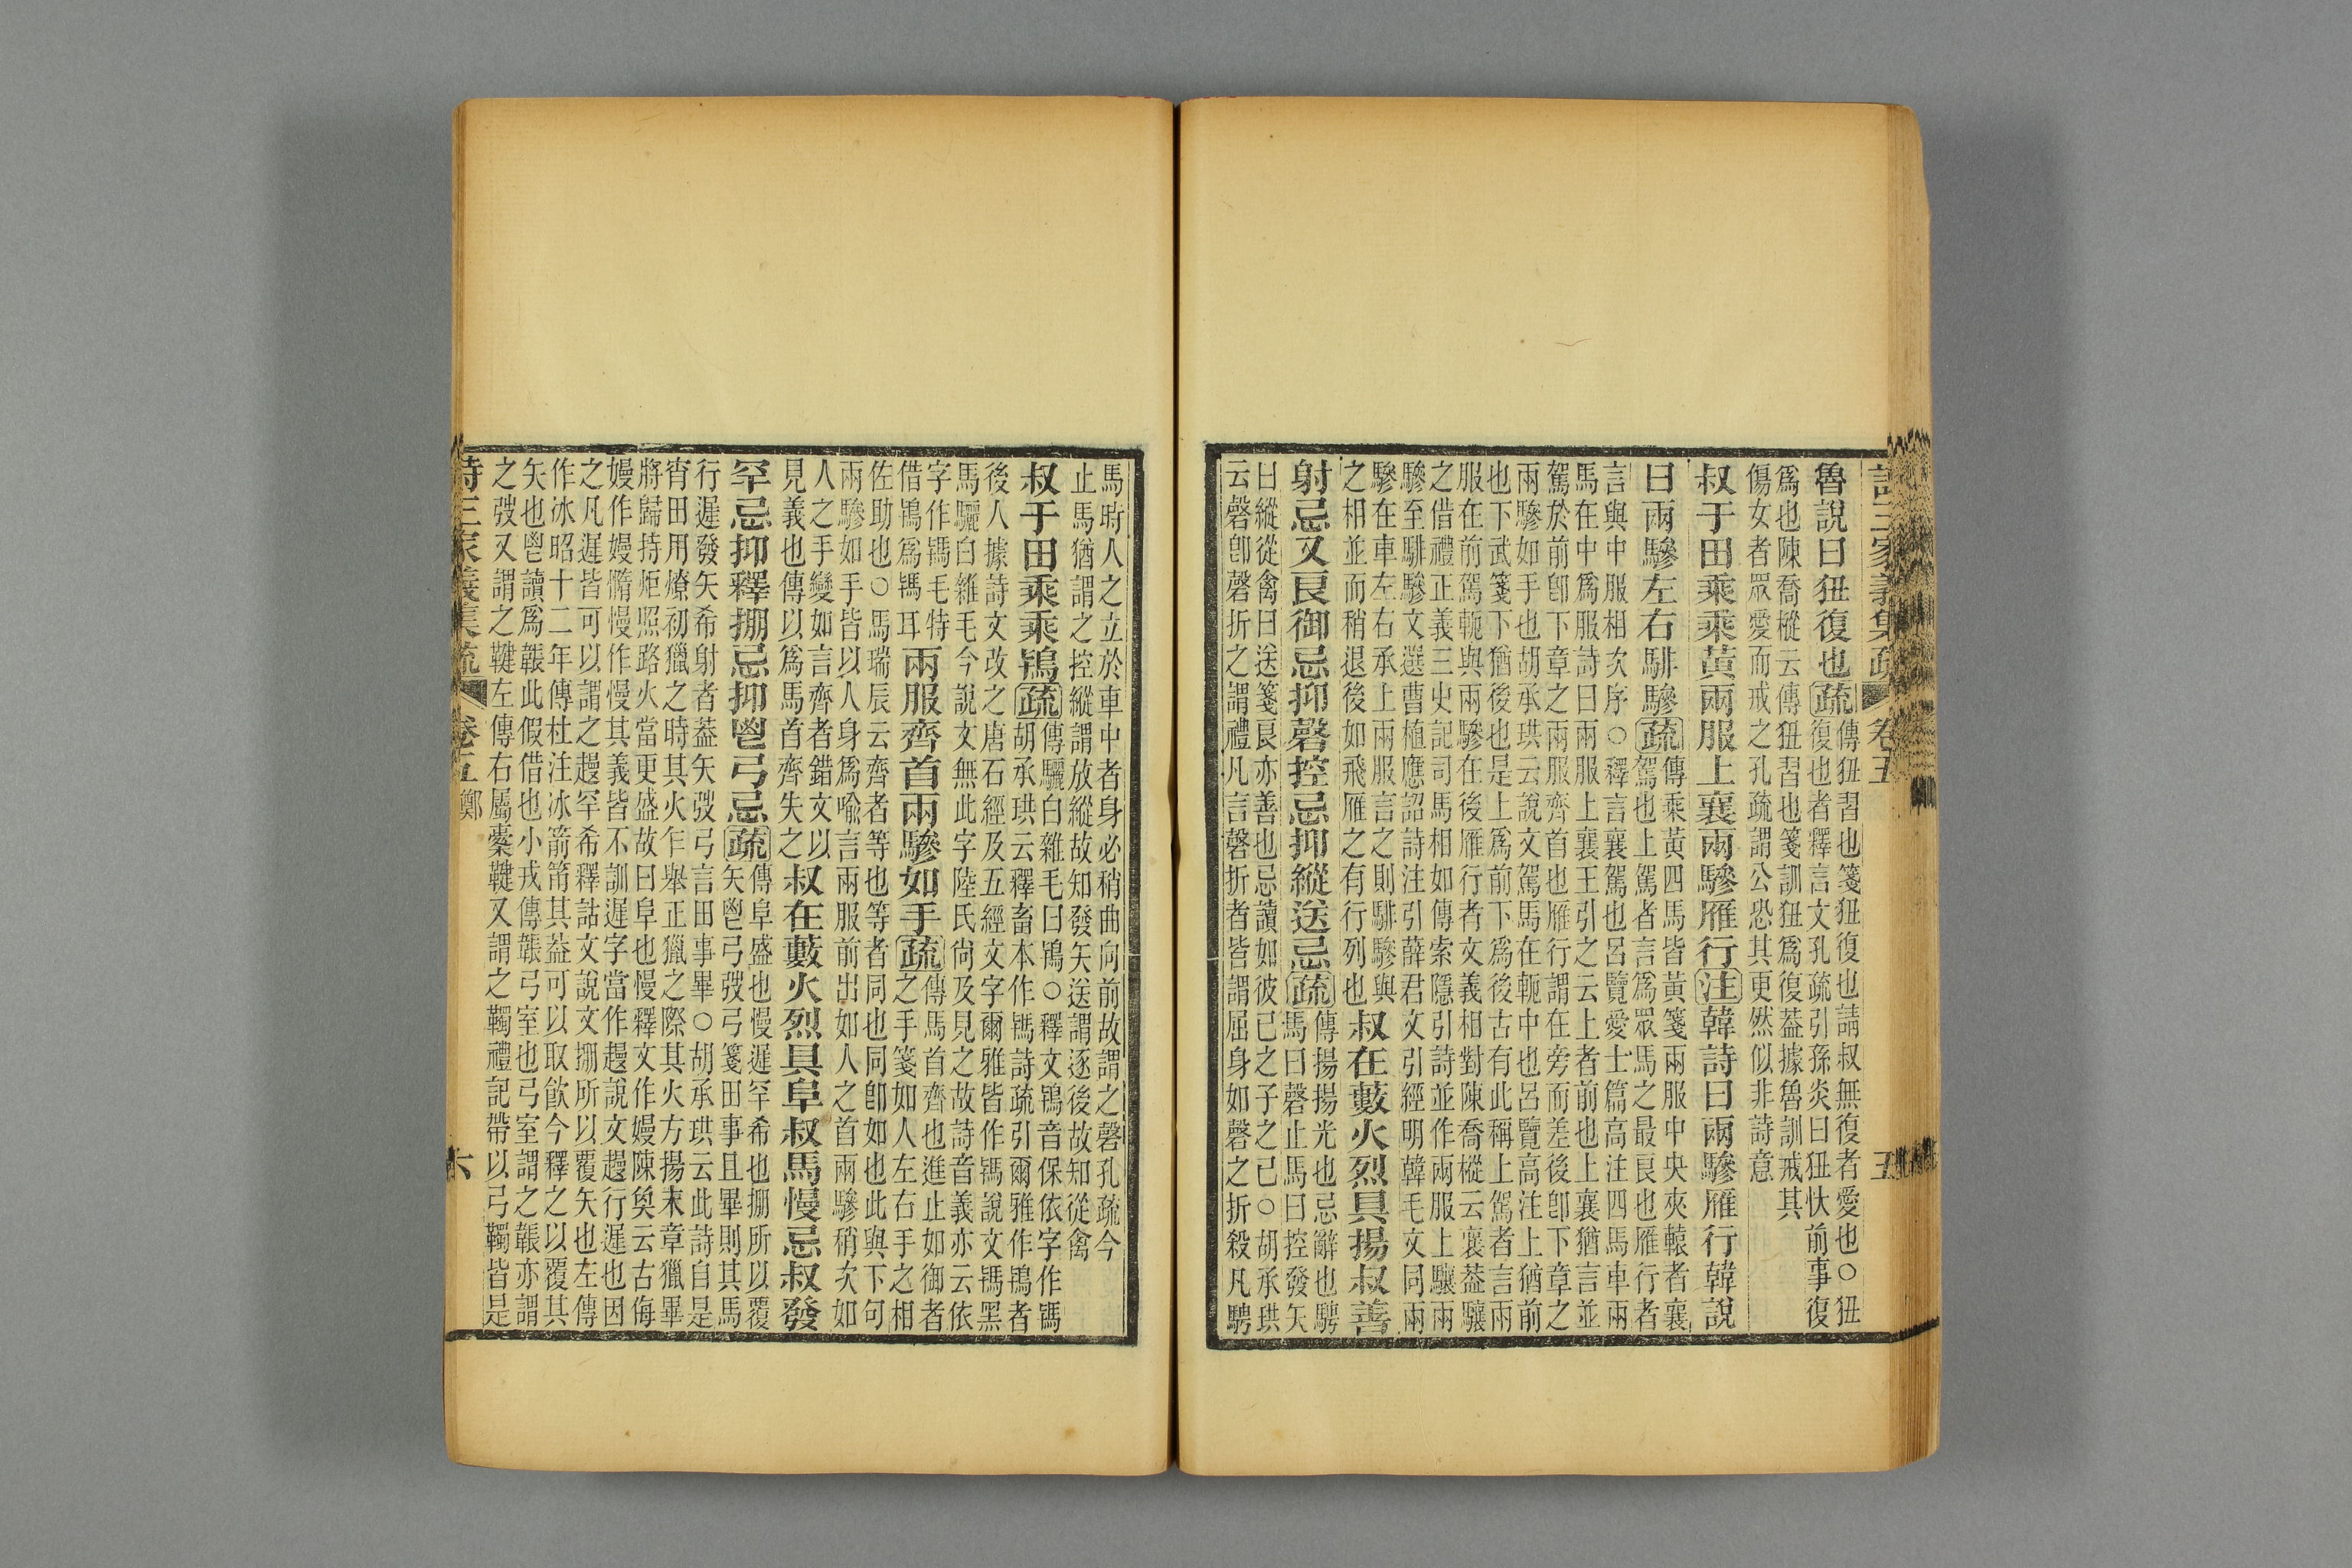 詩三家義集疏 卷五 五
魯說曰狃復也疏傳狃習也箋狃復也請叔無復者愛也○狃
復也者釋言文孔疏引孫炎曰狃忕前事復
爲也陳喬樅云傳狃習也箋訓狃爲復葢據魯訓戒其
傷女者眾愛而戒之孔疏謂公恐其更然似非詩意
叔于田乘乘黃兩服上襄兩驂雁行注韓詩曰兩驂雁行韓說
曰兩驂左右騑驂疏傳乘黃四馬皆黃箋兩服中央夾轅者襄
駕也上駕者言爲眾馬之最良也雁行者
言與中服相次序○釋言襄駕也呂覽愛士篇高注四馬車兩
馬在中爲服詩曰兩服上襄王引之云上者前也上襄猶言並
駕於前卽下章之兩服齊首也雁行謂在旁而差後卽下章之
兩驂如手也胡承珙云說文駕馬在軛中也呂覽高注上猶前
也下武箋下猶後也是上爲前下爲後古有此稱上駕者言兩
服在前駕軛與兩驂在後雁行者文義相對陳喬樅云襄葢驤
之借禮正義三史記司馬相如傳索隱引詩並作兩服上驤兩
驂至騑驂文選曹植應詔詩注引薛君文引經明韓毛文同兩
驂在車左右承上兩服言之則騑驂與
之相並而稍退後如飛雁之有行列也叔在藪火烈具揚叔善
射忌又良御忌抑磬控忌抑縱送忌疏傳揚揚光也忌辭也騁
馬曰磬止馬曰控發矢
曰縱從禽曰送箋良亦善也忌讀如彼已之子之已○胡承珙
云磬卽磬折之謂禮凡言磬折者皆謂屈身如磬之折殺凡騁
馬時人之立於車中者身必稍曲向前故謂之磬孔疏今
止馬猶謂之控縱謂放縱故知發矢送謂逐後故知從禽
叔于田乘乘鴇疏傳驪白雜毛曰鴇○釋文鴇音保依字作𩿽
胡承珙云釋畜本作𩿽詩疏引爾雅作鴇者
後人據詩文改之唐石經及五經文字爾雅皆作𩿽說文𩿽黑
馬驪白雜毛今說文無此字陸氏尙及見之故詩音義亦云依
字作𩿽毛特
借鴇爲𩿽耳兩服齊首兩驂如手疏傳馬首齊也進止如御者
之手箋如人左右手之相
佐助也○馬瑞辰云齊者等也等者同也同卽如也此與下句
兩驂如手皆以人身爲喻言兩服前出如人之首兩驂稍次如
人之手變如言齊者錯文以
見義也傳以爲馬首齊失之叔在藪火烈具阜叔馬慢忌叔發
罕忌抑釋掤忌抑鬯弓忌疏傳阜盛也慢遲罕希也掤所以覆
矢鬯弓弢弓箋田事且畢則其馬
行遲發矢希射者葢矢弢弓言田事畢○胡承珙云此詩自是
宵田用燎初獵之時其火乍舉正獵之際其火方揚末章獵畢
將歸持炬照路火當更盛故曰阜也慢釋文作嫚陳奐云古侮
嫚作嫚惰慢作慢其義皆不訓遲字當作趧說文趧行遲也因
之凡遲皆可以謂之趧罕希釋詁文說文掤所以覆矢也左傳
作冰昭十二年傳杜注冰箭筩其葢可以取飮今釋之以覆其
矢也鬯讀爲韔此假借也小戎傳韔弓室也弓室謂之韔亦謂
之弢又謂之鞬左傳右屬櫜鞬又謂之韣禮記帶以弓韣皆是
詩三家義集疏 卷五 鄭 六